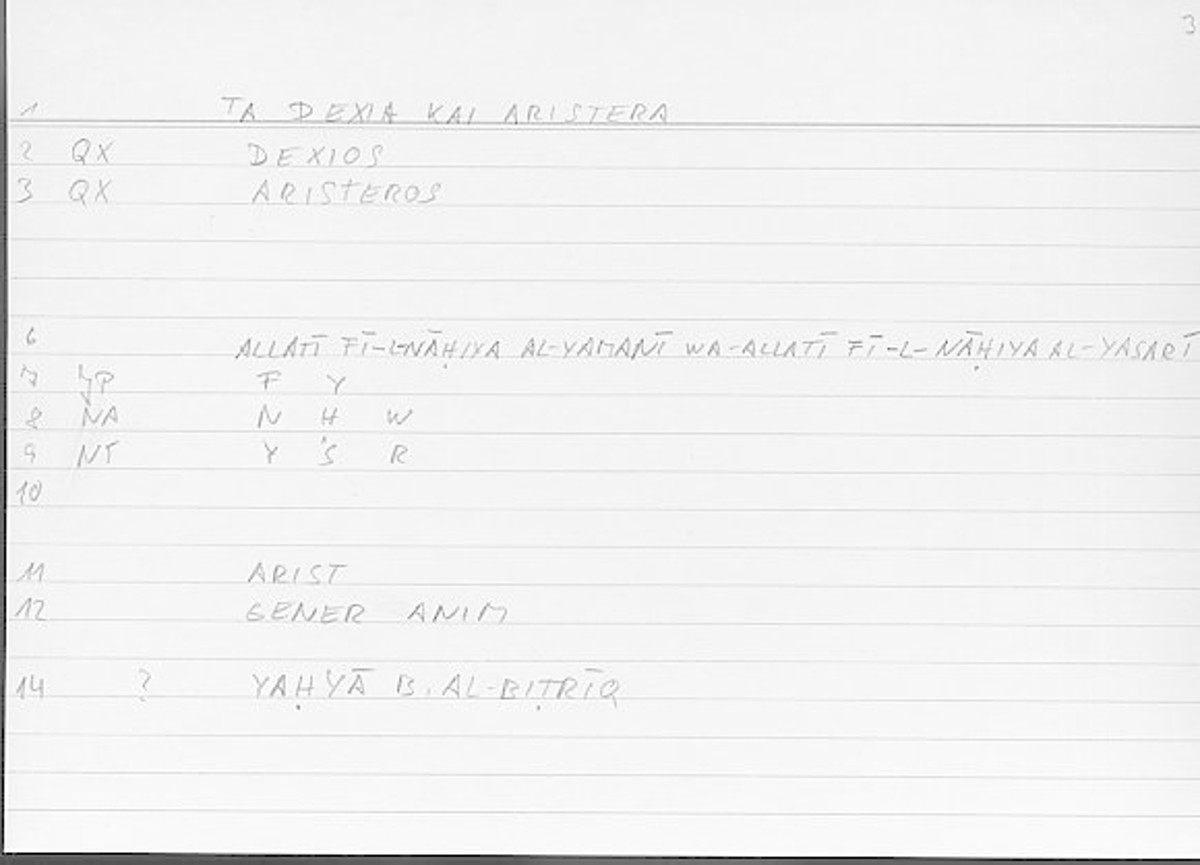 3
1 TA DEXIA KAI ARISTERA
2 QX DEXIOS
3 QX ARISTEROS
6 ALLATĪ FĪ-L-NĀḤIYA AL-YAMANĪ WA-ALLATĪ FĪ-L-NĀḤIYA AL-YASARĪ
7 JP F Y
8 NA N H W
9 NT Y S R
10
11 ARIST
12 GENER ANIM
14 ? YAḤYĀ B. AL-BIṬRĪQ